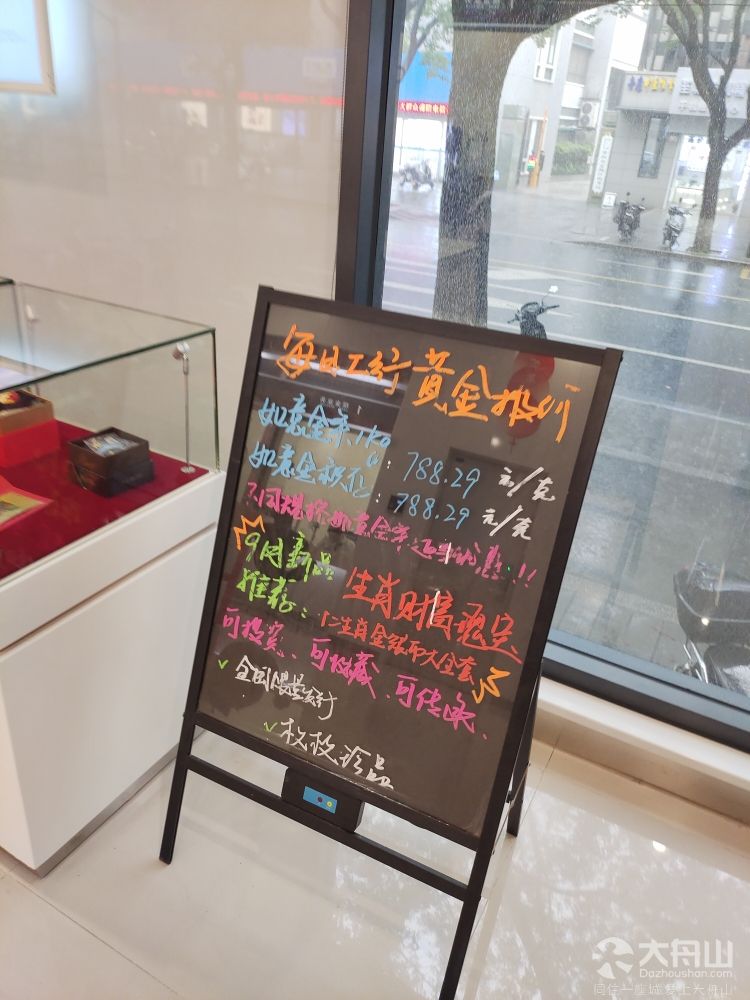 每日工行黄金报价
如意金条1kg
: 788.29 元/克
如意金积存
: 788.29 元/克
不同规格如意金条还有优惠!!!
9月新品
推荐:
生肖财富
十二生肖金钞币大全套
可投资、可收藏、可传承、
✓ 全国限量发行
✓ 枚枚珍品
大舟山
Dazhoushan.com
同住一座城 爱上大舟山